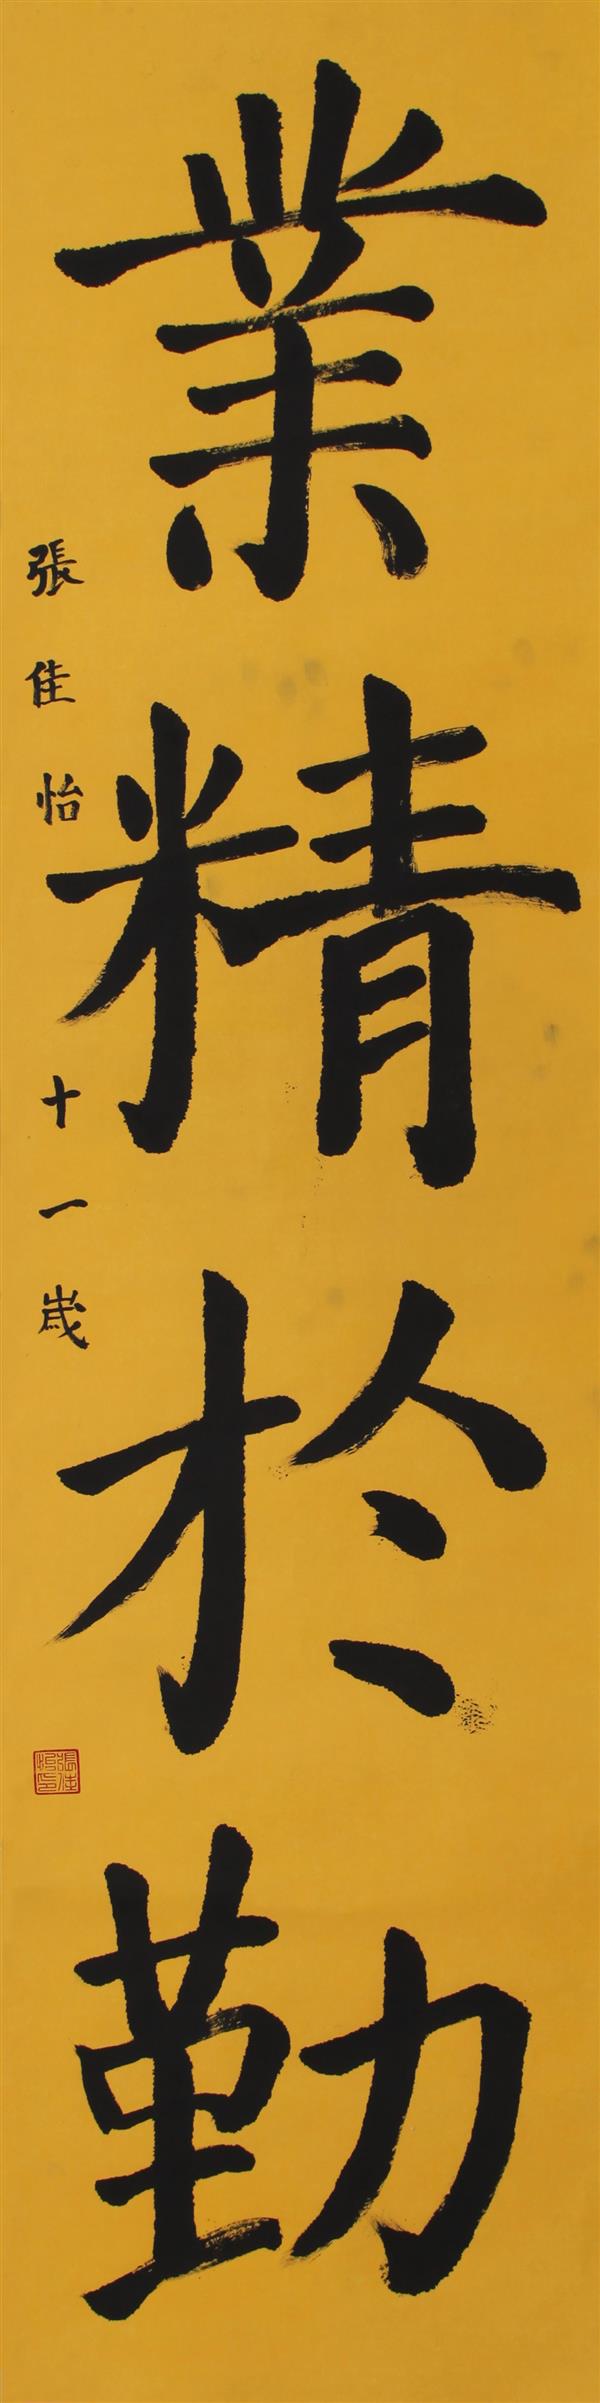 業精於勤
張佳怡 十一歲
張佳怡印